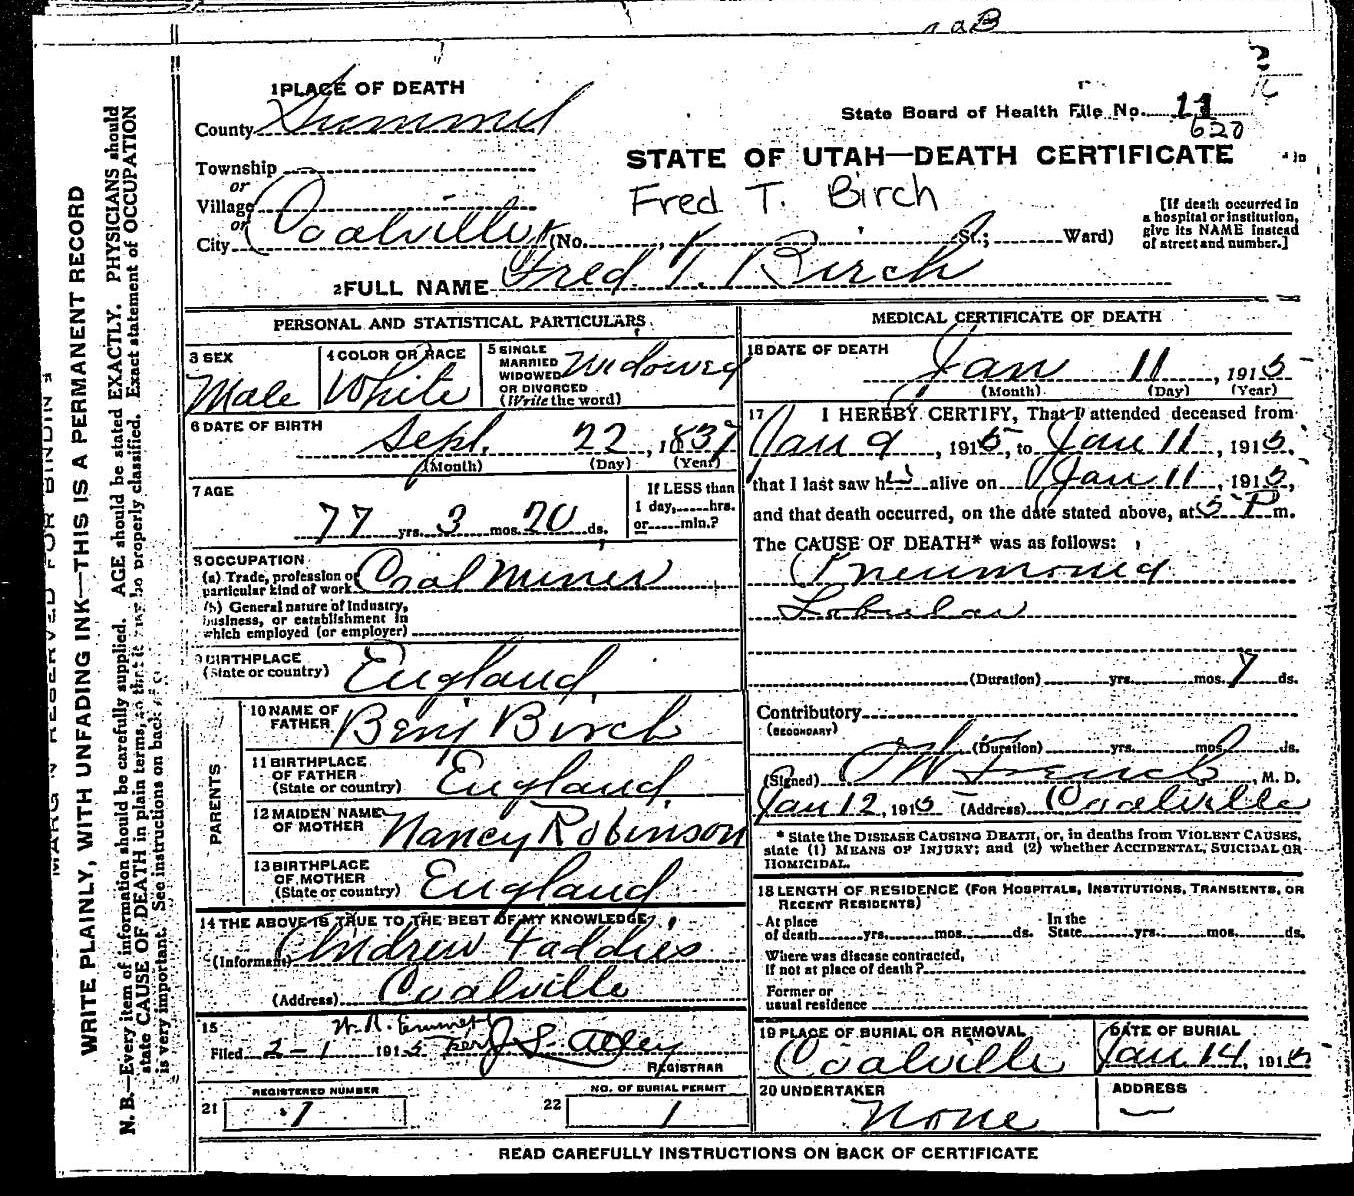 1 PLACE OF DEATH
County Summit
State Board of Health File No. 11
620
Township
or
Village
or
City Coalville (No. St.; Ward)
STATE OF UTAH—DEATH CERTIFICATE
Fred T. Birch
[If death occurred in
a hospital or institution,
give its NAME instead
of street and number.]
2 FULL NAME Fred T. Birch
PERSONAL AND STATISTICAL PARTICULARS
3 SEX
Male
4 COLOR OR RACE
White
5 SINGLE
MARRIED
WIDOWED
OR DIVORCED
(Write the word)
Widowed
6 DATE OF BIRTH
Sept. 22, 1837
(Month) (Day) (Year)
7 AGE
77 yrs. 3 mos. 20 ds.
If LESS than
1 day, hrs.
or min.?
8 OCCUPATION
(a) Trade, profession or
particular kind of work Coal Miner
(b) General nature of Industry,
business, or establishment in
which employed (or employer)
9 BIRTHPLACE
(State or country) England
PARENTS
10 NAME OF
FATHER Benj Birch
11 BIRTHPLACE
OF FATHER
(State or country) England
12 MAIDEN NAME
OF MOTHER Nancy Robinson
13 BIRTHPLACE
OF MOTHER
(State or country) England
14 THE ABOVE IS TRUE TO THE BEST OF MY KNOWLEDGE
(Informant) Andrew Faddies
(Address) Coalville
15
Filed 2-1 1915 Per J S
REGISTRAR
REGISTERED NUMBER
21 1
NO. OF BURIAL PERMIT
22 1
MEDICAL CERTIFICATE OF DEATH
16 DATE OF DEATH
Jan 11, 1915
(Month) (Day) (Year)
17 I HEREBY CERTIFY, That I attended deceased from
Jan 9, 1915, to Jan 11, 1915,
that I last saw h alive on Jan 11, 1915,
and that death occurred, on the date stated above, at 5 P m.
The CAUSE OF DEATH* was as follows:
Pneumonia
Lobular
(Duration) yrs. mos. 7 ds.
Contributory
(SECONDARY)
(Duration) yrs. mos. ds.
(Signed) French, M. D.
Jan 12, 1915 (Address) Coalville
* State the DISEASE CAUSING DEATH, or, in deaths from VIOLENT CAUSES,
state (1) MEANS OF INJURY; and (2) whether ACCIDENTAL, SUICIDAL OR
HOMICIDAL.
18 LENGTH OF RESIDENCE (FOR HOSPITALS, INSTITUTIONS, TRANSIENTS, OR
RECENT RESIDENTS)
At place
of death yrs. mos. ds.
In the
State yrs. mos. ds.
Where was disease contracted,
if not at place of death?
Former or
usual residence
19 PLACE OF BURIAL OR REMOVAL
Coalville
DATE OF BURIAL
Jan. 14, 1915
20 UNDERTAKER
None
ADDRESS
READ CAREFULLY INSTRUCTIONS ON BACK OF CERTIFICATE
WRITE PLAINLY, WITH UNFADING INK—THIS IS A PERMANENT RECORD
N. B.—Every item of information should be carefully supplied. AGE should be stated EXACTLY. PHYSICIANS should
state CAUSE OF DEATH in plain terms, so that it may be properly classified. Exact statement of OCCUPATION
is very important. See instructions on back